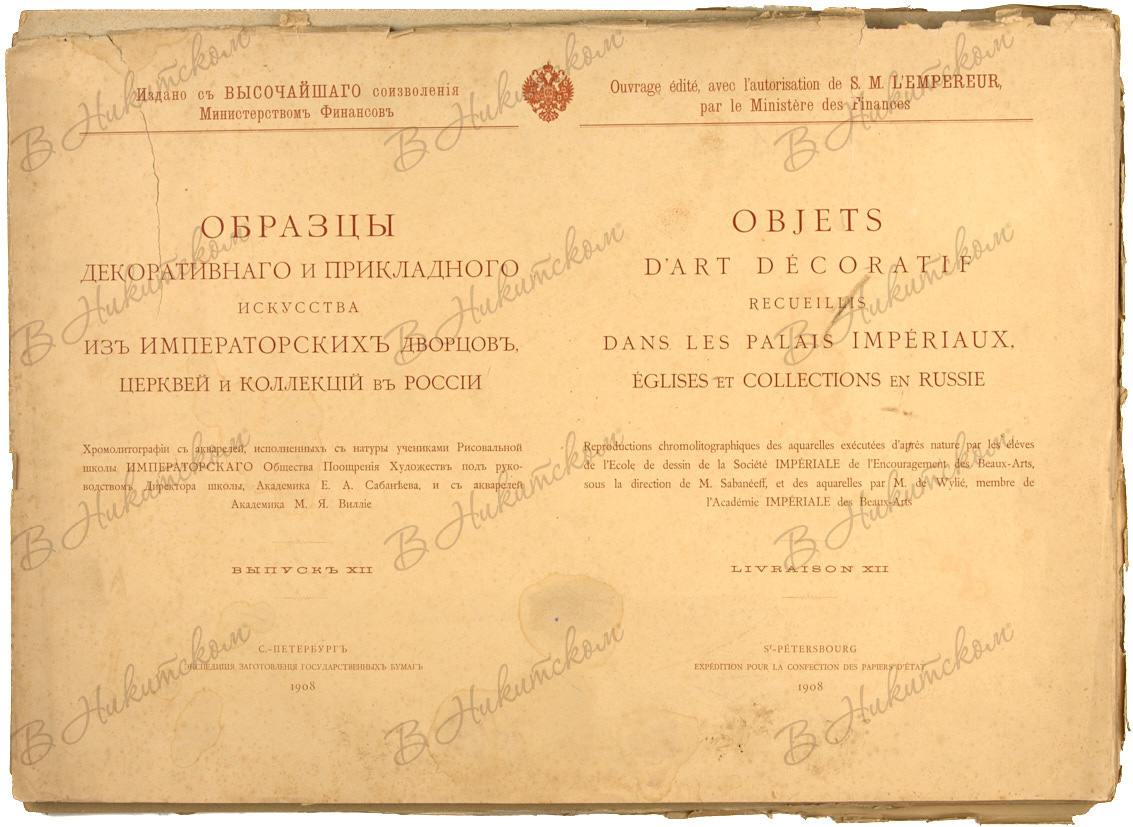 Издано съ ВЫСОЧАЙШАГО соизволенія
Министерствомъ Финансовъ
Ouvrage édité, avec l'autorisation de S. M. L'EMPEREUR,
par le Ministère des Finances
ОБРАЗЦЫ
ДЕКОРАТИВНАГО И ПРИКЛАДНОГО
ИСКУССТВА
ИЗЪ ИМПЕРАТОРСКИХЪ ДВОРЦОВЪ,
ЦЕРКВЕЙ И КОЛЛЕКЦІЙ ВЪ РОССІИ
Хромолитографіи съ акварелей, исполненныхъ съ натуры учениками Рисовальной
школы ИМПЕРАТОРСКАГО Общества Поощренія Художествъ подъ руко-
водствомъ Директора школы, Академика Е. А. Сабанѣева, и съ акварелей
Академика М. Я. Вилліе
ВЫПУСКЪ XII
С.-ПЕТЕРБУРГЪ
ЭКСПЕДИЦІЯ ЗАГОТОВЛЕНІЯ ГОСУДАРСТВЕННЫХЪ БУМАГЪ
1908
OBJETS
D'ART DÉCORATIF
RECUEILLIS
DANS LES PALAIS IMPÉRIAUX,
ÉGLISES ET COLLECTIONS EN RUSSIE
Reproductions chromolitographiques des aquarelles exécutées d'après nature par les élèves
de l'Ecole de dessin de la Société IMPÉRIALE de l'Encouragement des Beaux-Arts,
sous la direction de M. Sabanéeff, et des aquarelles par M. de Wylié, membre de
l'Académie IMPÉRIALE des Beaux-Arts
LIVRAISON XII
St-PÉTERSBOURG
EXPÉDITION POUR LA CONFECTION DES PAPIERS D'ÉTAT
1908
В Никитском
В Никитском
В Никитском
В Никитском
В Никитском
В Никитском
В Никитском
В Никитском
В Никитском
В Никитском
В Никитском
В Никитском